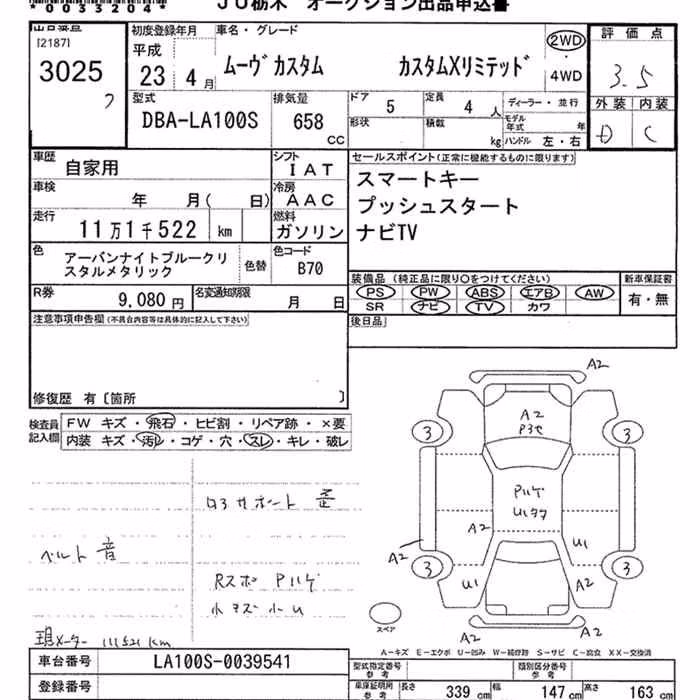 *0033204*
JU栃木 オークション出品申込書
出品番号
[2187]
3025
初度登録年月
平成
23 4月
車名・グレード
ムーヴカスタム カスタムXリミテッド
2WD
・
4WD
評価点
3.5
外装 内装
D C
型式
DBA-LA100S
排気量
658
CC
ドア 5
定員 4 人
形状
積載 kg
ディーラー・並行
モデル年式 年
ハンドル 左・右
車歴 自家用
シフト IAT
車検 年 月( 日)
冷房 AAC
走行 11万1千522 km
燃料 ガソリン
色 アーバンナイトブルークリスタルメタリック
色替
色コード B70
R券 9,080円
名変通知期限 月 日
セールスポイント(正常に機能するものに限ります)
スマートキー
プッシュスタート
ナビTV
装備品(純正品に限り〇をつけてください)
PS PW ABS エアB AW
SR ナビ TV カワ
新車保証書
有・無
後日品
注意事項申告欄(不具合内容等は具体的に記入して下さい)
修復歴 有〔箇所 〕
検査員記入欄
FW キズ・飛石・ヒビ割・リペア跡・×要
内装 キズ・汚レ・コゲ・穴・スレ・キレ・破レ
ロアサポート 歪
ベルト 音
Rスポ Pハゲ
小キズ小U
現メーター 111521km
A2
A2
P3セ
3 3
Pハゲ
A2
U1
A2
3 3
U1
A2
A2
スペア
A-キズ E-エクボ U-凹み W-補修跡 S-サビ C-腐食 XX-交換済
車台番号 LA100S-0039541
登録番号
型式指定番号 参考
類別区分番号 参考
車庫証明用 参考 長さ 339 cm 幅 147 cm 高さ 163 cm